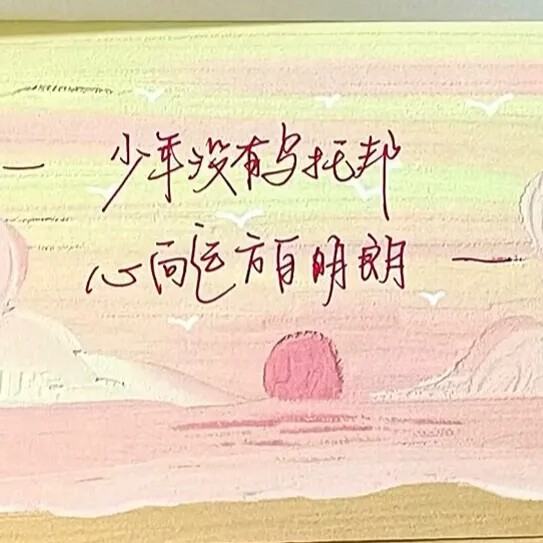 — 少年没有乌托邦
心向远方自明朗 —